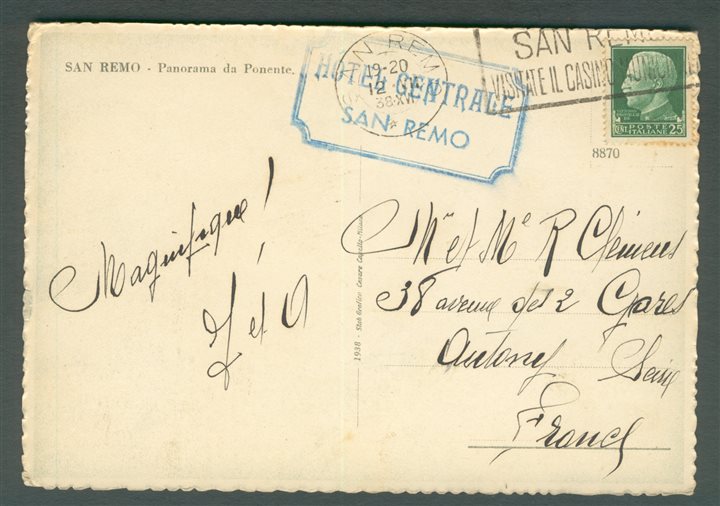 SAN REMO - Panorama da Ponente.
SAN REMO
19-20
12
38·XVI
HOTEL CENTRALE
SAN REMO
SAN REMO
VISITATE IL CASINO MUNICIPALE
CENT. POSTE ITALIANE 25
8870
Magnifique !
et
Mr et Me R Clémens
38 avenue des 2 Gares
Antony Seine
France
1938 - Stab Grafico Cesare Capello-Milano